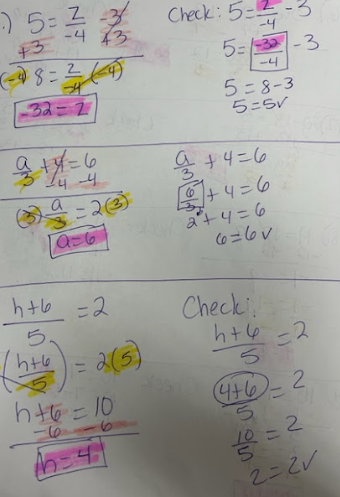 .) 5 = z/-4 - 3
+3 +3
(-4) 8 = z/-4 (-4)
-32 = z
Check: 5 = z/-4 - 3
5 = -32/-4 - 3
5 = 8 - 3
5 = 5 ✓
a/3 + 4 = 6
-4 -4
(3) a/3 = 2 (3)
a = 6
a/3 + 4 = 6
6/3 + 4 = 6
2 + 4 = 6
6 = 6 ✓
h+6/5 = 2
(h+6/5) = 2 (5)
h + 6 = 10
-6 -6
h = 4
Check:
h+6/5 = 2
4+6/5 = 2
10/5 = 2
2 = 2 ✓